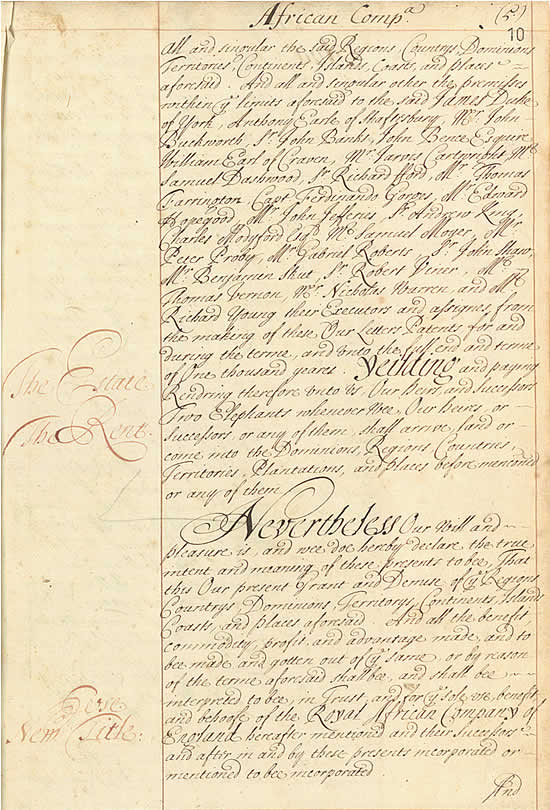 African Compª.
(5.)
10
All and singular the said Regions Countrys, Dominions
Territories, Continents, Islands, Coasts, and places
aforesaid. And all and singular other the premisses
within yᵉ limits aforesaid to the said James Duke
of York, Anthony Earle of Shaftsbury, Mr. John
Buckworth, Sr. John Banks, John Bence Esquire
William Earl of Craven, Mr. Jarvis Cartwright, Mr.
Samuel Dashwood, Sr. Richard fford, Mr. Thomas
Farrington Capt Ferdinando Gorges, Mr. Edward
Hopegood, Mr. John Jefferies, Sr. Andrew King,
Charles Modyford Esqr. Mr. Samuel Moyer, Mr.
Peter Proby, Mr. Gabriel Roberts, Sr. John Shaw,
Mr. Benjamin Skut, Sr. Robert Viner, Mr.
Thomas Vernon, Mr. Nicholas Warren, and Mr.
Richard Young their Executors and assignes, from
the making of these Our Letters Patents for and
during the terme, and vnto the full end and terme
of One thousand years. Yeilding and paying
The Estate
Rendring therefore vnto Us, Our heirs, and Successors
Two Elephants whenever Wee, Our heirs, or
The Rent.
Successors or any of them, shall arrive, land or
come into the Dominions, Regions, Countries,
Territories, Plantations, and places before mencioned
or any of them
Nevertheless Our Will and
pleasure is, and wee doe hereby declare the true
intent and meaning of these presents to bee, That
this Our present Grant and Demise of yᵉ Regions
Countrys, Dominions, Territorys, Continents, Islands
Coasts, and places aforesaid. And all the benefit,
commodity, profit, and advantage made, and to
bee made and gotten out of yᵉ same, or by reason
of the terme aforesaid shall bee, and shall bee
interpreted to bee, in Trust, and for yᵉ sole vse, benefit
and behoofe of the Royal African Company of
New Title:
England hereafter mentioned and their Successors
and after in and by these presents incorporated or
mentioned to bee incorporated.
And